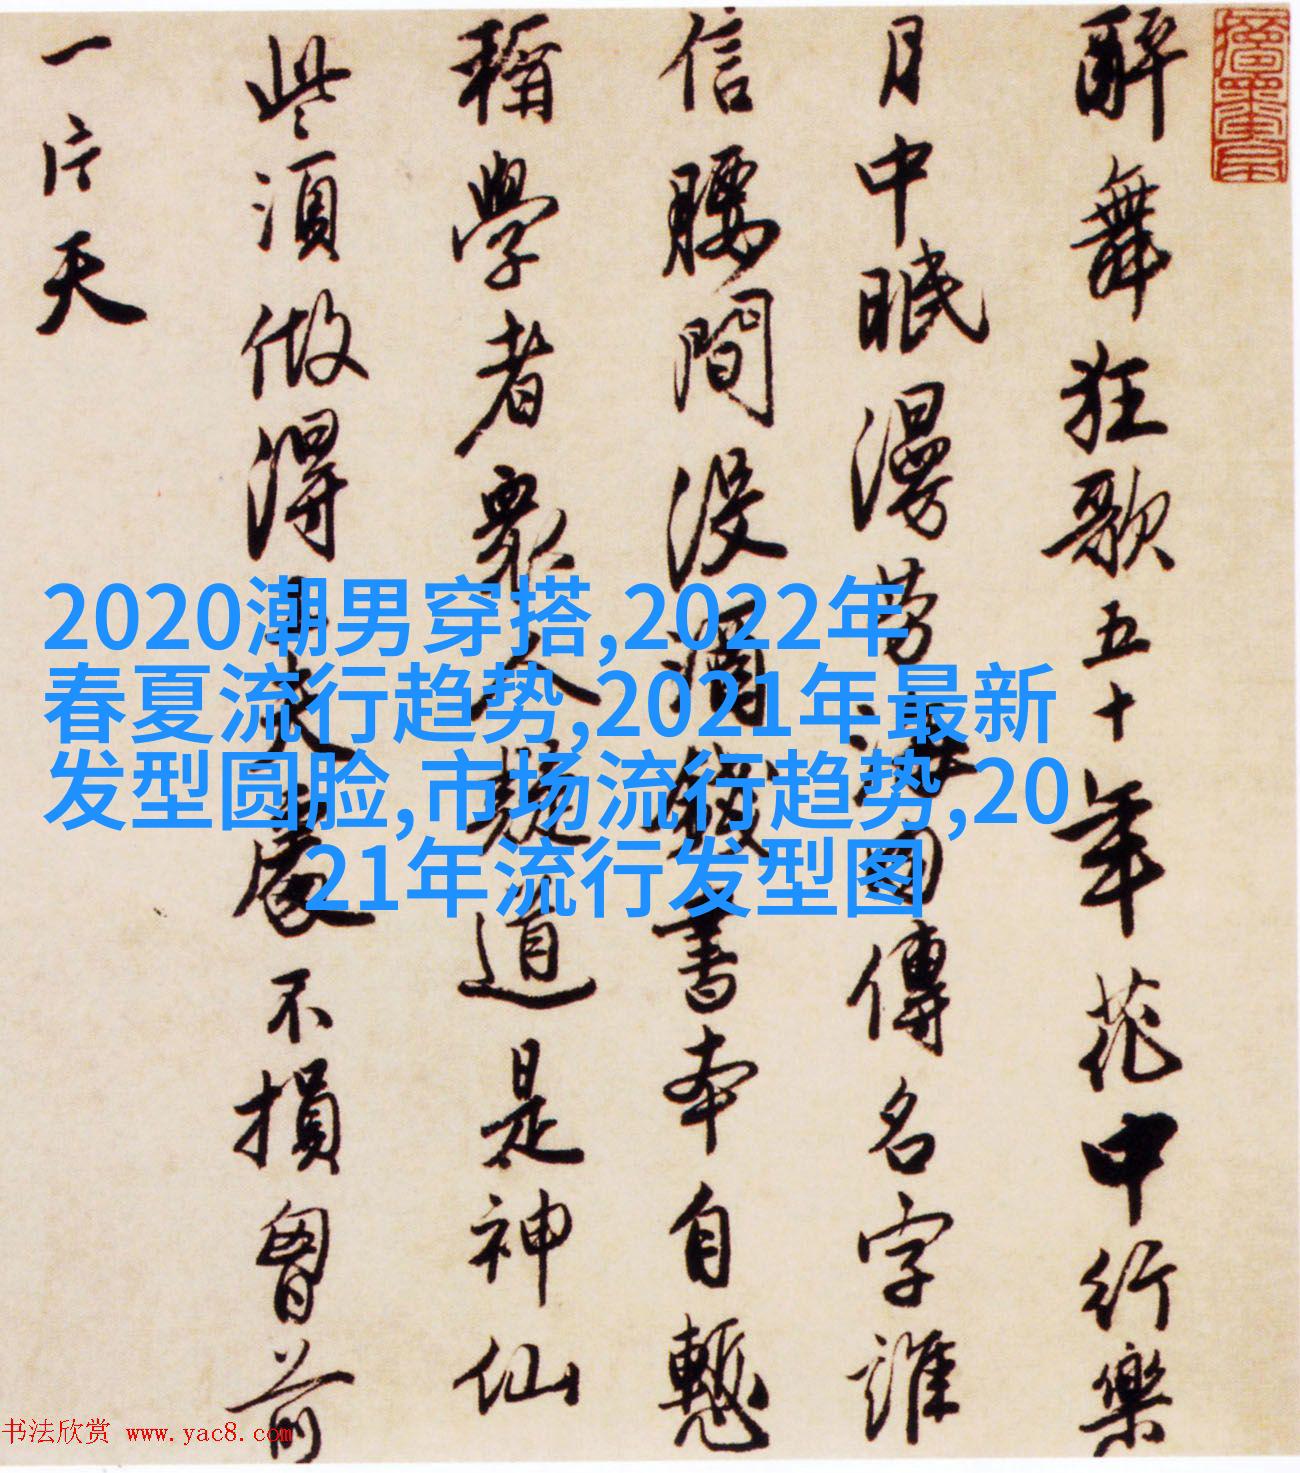 醉舞狂歌五十年花中行樂
月中眠漫勞海內傳名字誰
信腰間沒酒錢書本自慙
稱學者衆人疑道是神仙
些須做得工夫處不損胷前
一片天
2020潮男穿搭,2022年
春夏流行趋势,2021年最新
发型圆脸,市场流行趋势,20
21年流行发型图
书法欣赏 www.yac8.com